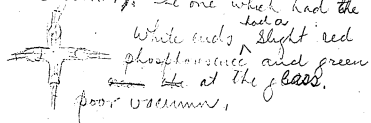 The one which had the
White ends had a slight red
phosphorescence and green
at the glass.
poor vacuum.